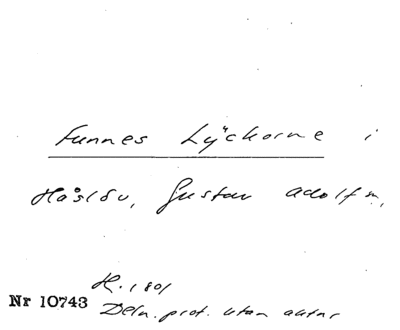 Funnes Lÿckorne i
Håslöv, Gustav Adolf s.
H. 1801
Nr 10743 Deln. prot. utan aktnr